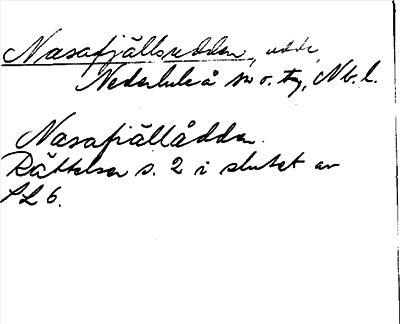 Nasafjällsudden, udde,
Nederluleå sn o. tg, Nb. l.
Nasafiällådden.
Rättelser s. 2 i slutet av
SL 6.